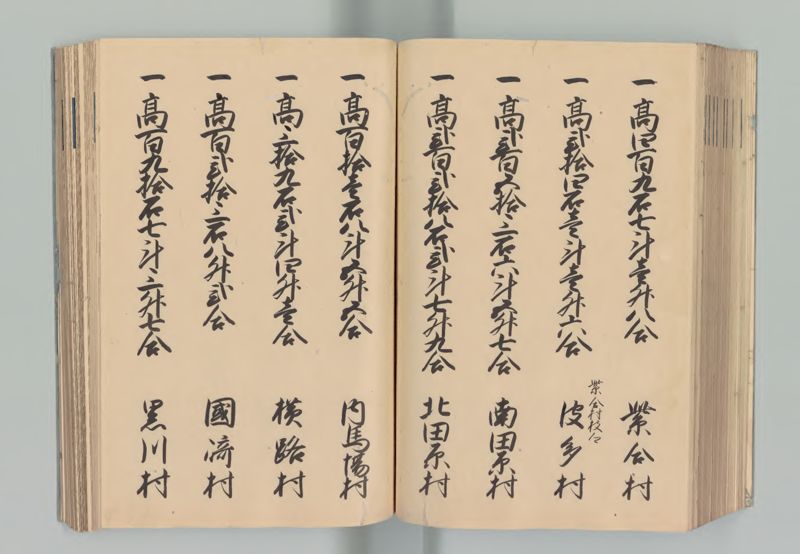 一 高四百九石七斗壹升八合 紫合村
一 高弐拾四石壹斗壹升六合 紫合村枝郷 波多村
一 高弐百五拾三石六斗五升七合 南田原村
一 高弐百弐拾八石弐斗七升九合 北田原村
一 高百拾壹石八斗五升五合 内馬場村
一 高三拾九石弐斗四升壹合 横路村
一 高百弐拾三石八升弐合 國﨑村
一 高百九拾石七斗三升七合 黒川村